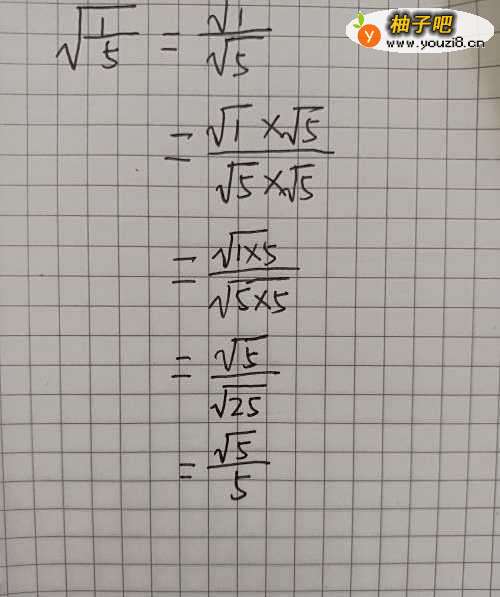 柚子吧
www.youzi8.cn
√(1/5) = √1/√5
= (√1×√5)/(√5×√5)
= √(1×5)/√(5×5)
= √5/√25
= √5/5